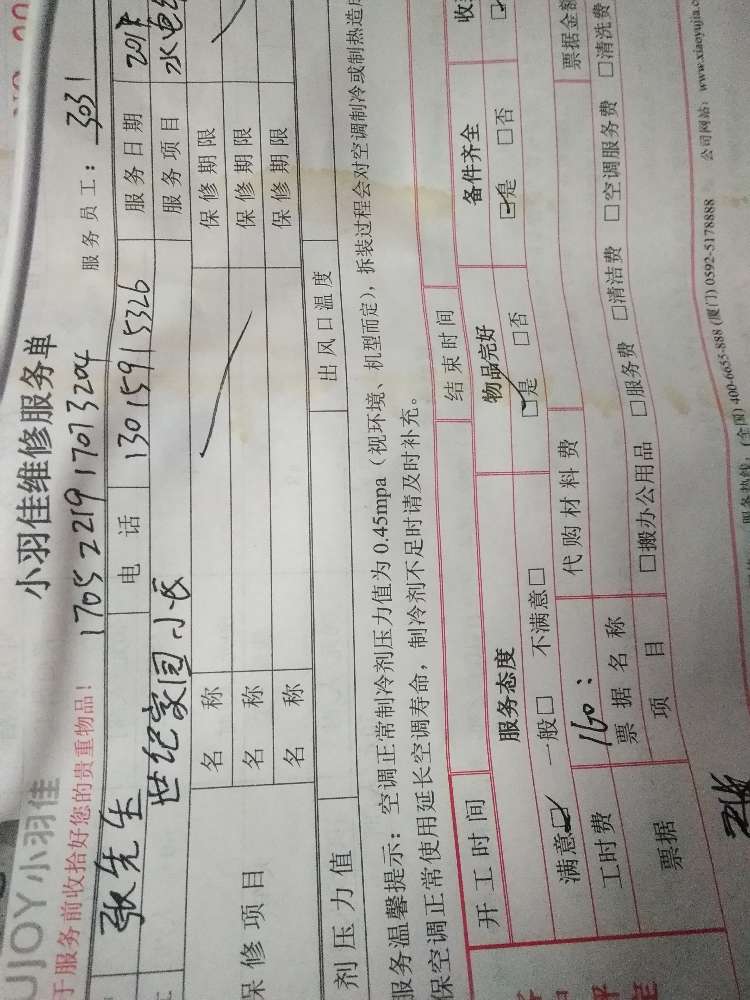 UJOY小羽佳
小羽佳维修服务单
于服务前收拾好您的贵重物品!
1705221917073204
服务员工: 3031
张先生 电话 13015915326 服务日期 201
世纪家园 服务项目 水电
名称 保修期限
保修项目 名称 保修期限
名称 保修期限
剂压力值 出风口温度
服务温馨提示: 空调正常制冷剂压力值为0.45mpa（视环境、机型而定），拆装过程会对空调制冷或制热造成
保空调正常使用延长空调寿命，制冷剂不足时请及时补充。
开工时间 结束时间
服务态度 物品完好 备件齐全
满意☑ 一般□ 不满意□ ☑是 □否 ☑是 □否
工时费 160: 代购材料费 票据金额
票据 票据名称
项目 □搬办公用品 □服务费 □清洁费 □空调服务费 □清洗费
(全国) 400-6655-888 (厦门) 0592-5178888 公司网站: www.xiaoyujia.c